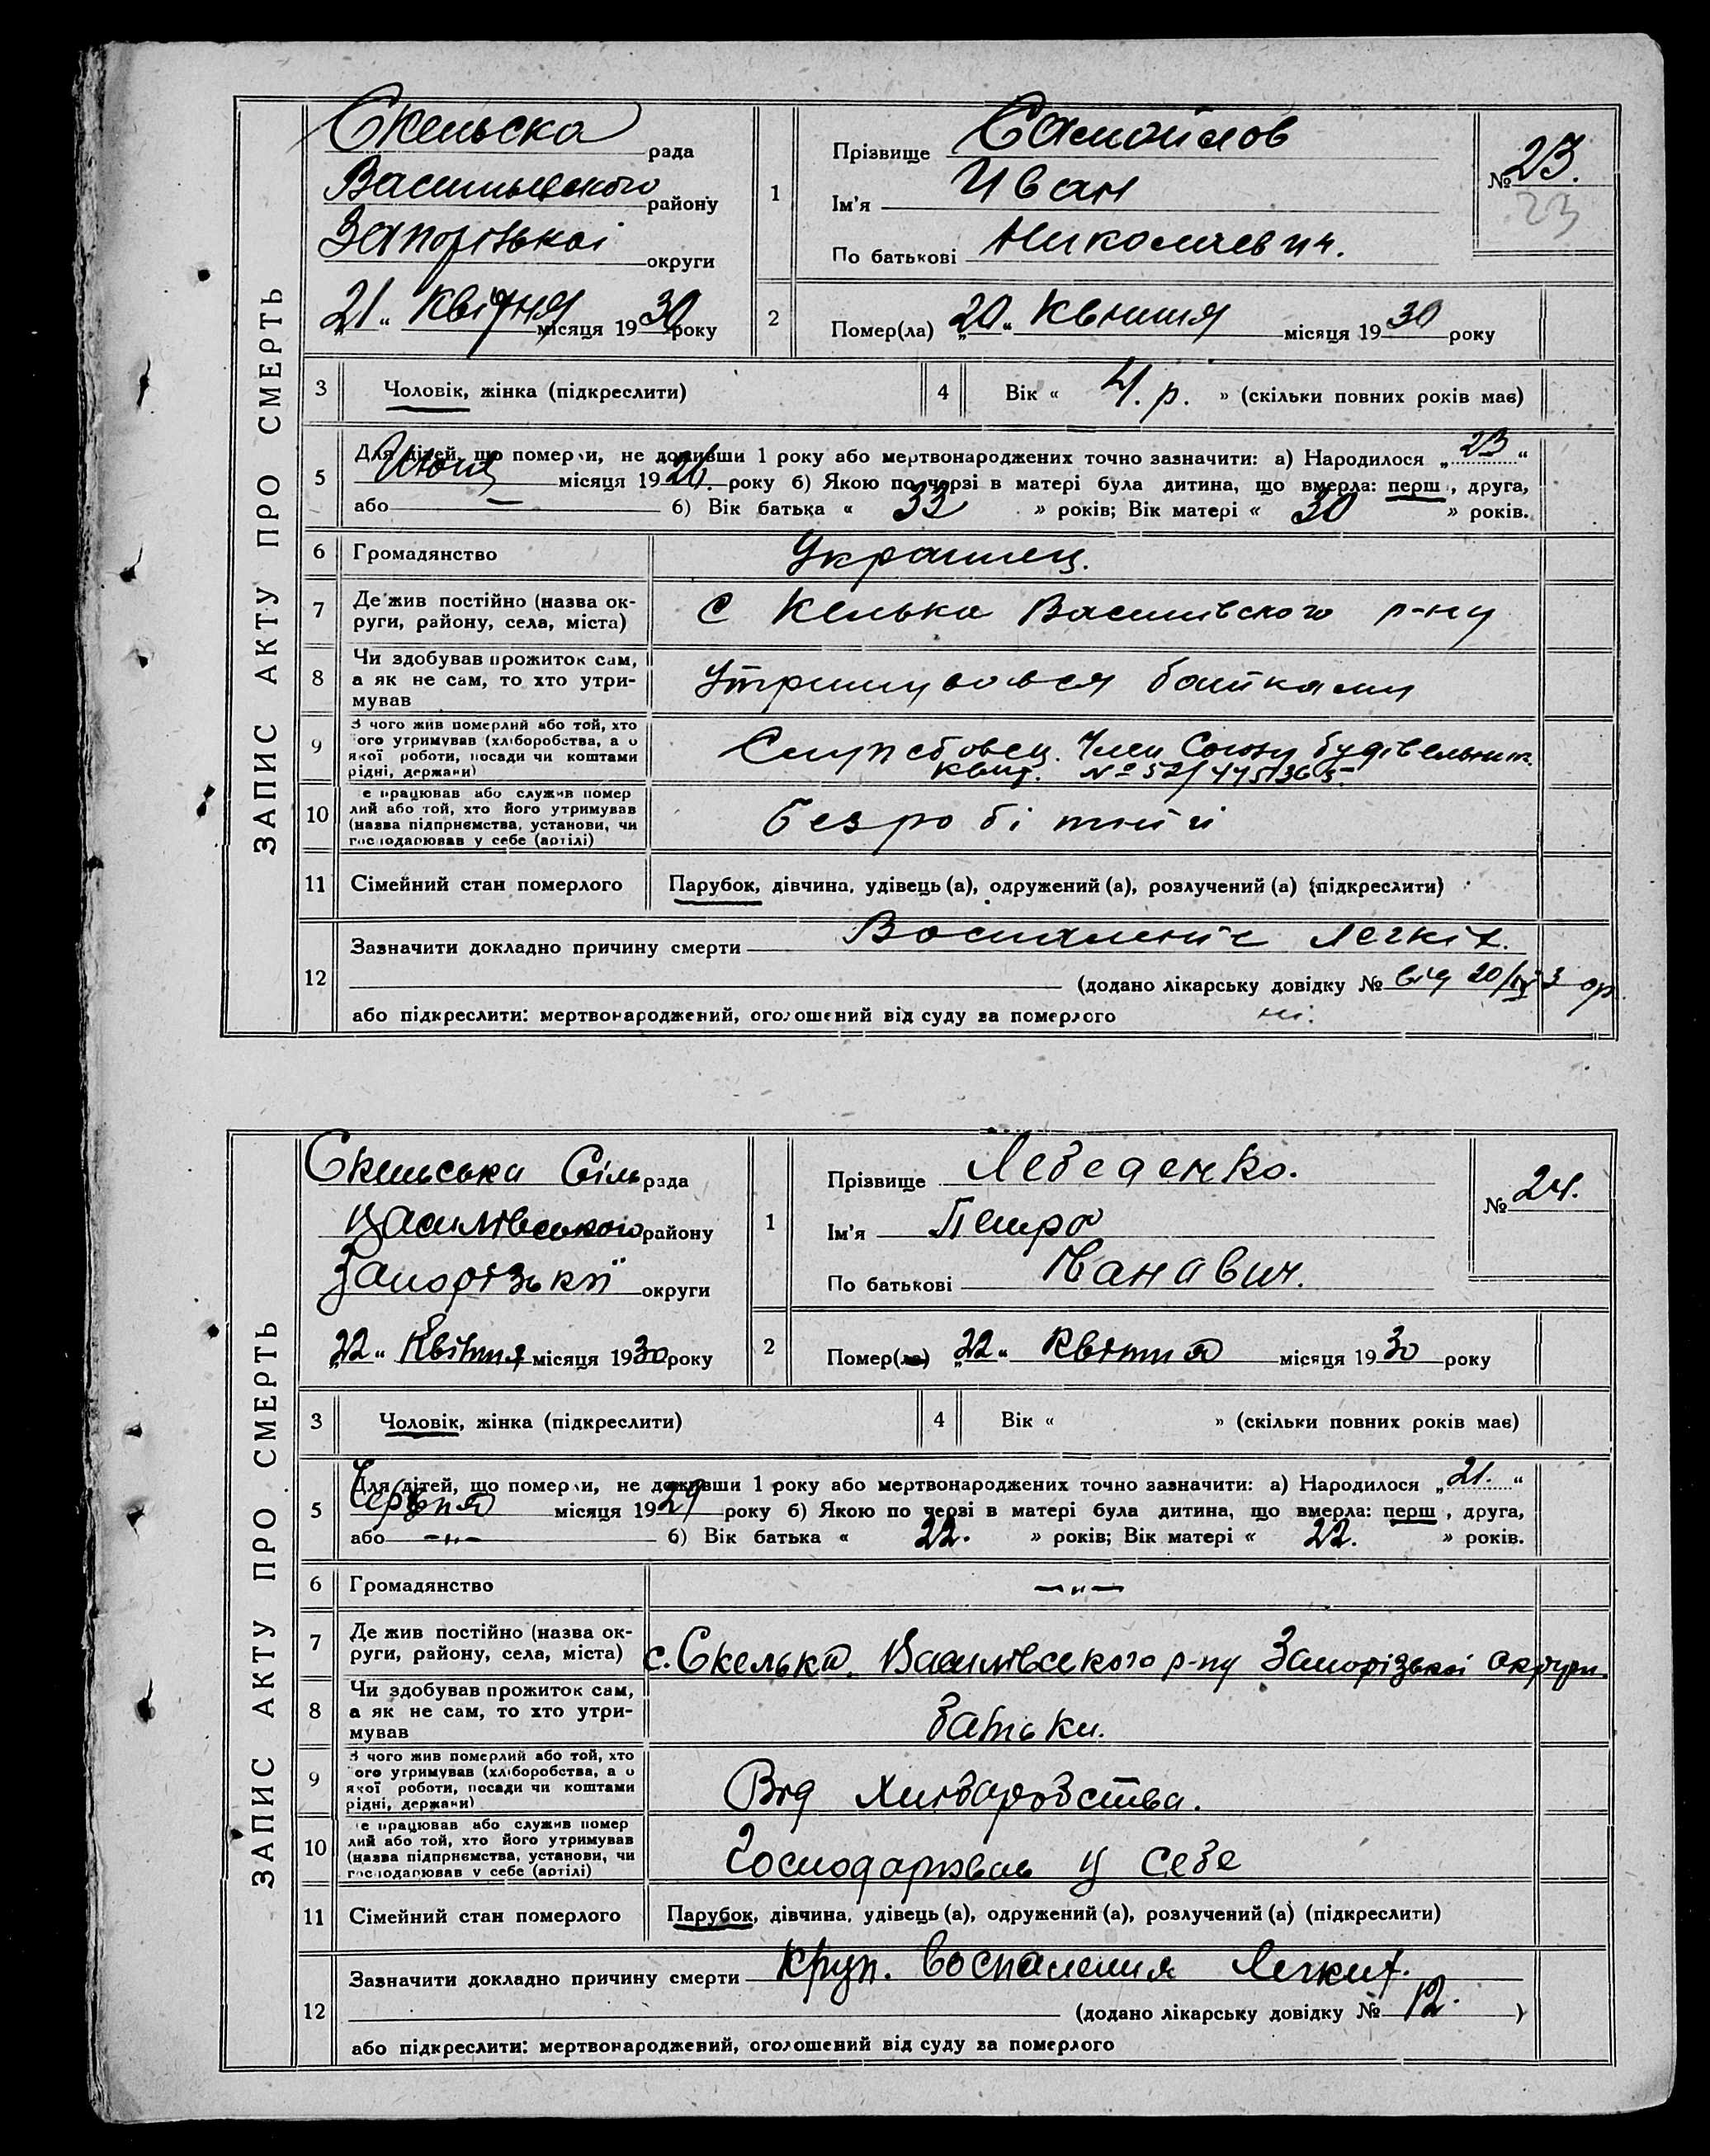 ЗАПИС АКТУ ПРО СМЕРТЬ
Скельска рада
Васильевского району
Запорізької округи
21 " Квітня місяця 1930 року
1
Прізвище Самойлов
Ім'я Иван
По батькові Николаевич.
№ 23.
23
2
Помер(ла) „20" Квитня місяця 1930 року
3 Чоловік, жінка (підкреслити)
4 Вік « 4. р. » (скільки повних років має)
5 Для дітей, що померли, не доживши 1 року або мертвонароджених точно зазначити: а) Народилося „ 23 "
Июня місяця 1926. року б) Якою по черзі в матері була дитина, що вмерла: перш , друга,
або — б) Вік батька « 33 » років; Вік матері « 30 » років.
6 Громадянство Украинец.
7 Де жив постійно (назва ок-
руги, району, села, міста) С Келька Василівского р-ну
8 Чи здобував прожиток сам,
а як не сам, то хто утри-
мував Утримувався батками
9 З чого жив померлий або той, хто
ого утримував (хліборобства, а о
якої роботи, посади чи коштами
рідні, держави) Член Союзу будівельник.
квит. №
10 е працював або служив помер
лий або той, хто його утримував
(назва підприємства, установи, чи
господарював у себе (артілі) безробітній
11 Сімейний стан померлого Парубок, дівчина, удівець (а), одружений (а), розлучений (а) (підкреслити)
12 Зазначити докладно причину смерти Воспаление легкіх.
(додано лікарську довідку № від 20/IV 3 ор.
або підкреслити: мертвонароджений, оголошений від суду за померлого ні.
ЗАПИС АКТУ ПРО СМЕРТЬ
Скельська Сіль рада
Василівського району
Запорізькії округи
„22" Квітня місяця 1930 року
1
Прізвище Лебеденко.
Ім'я Петро
По батькові Иванавич.
№ 24.
2
Помер(ла) „22" Квітня місяця 1930 року
3 Чоловік, жінка (підкреслити)
4 Вік « » (скільки повних років має)
5 Для дітей, що померли, не доживши 1 року або мертвонароджених точно зазначити: а) Народилося „ 21. "
місяця 1929 року б) Якою по черзі в матері була дитина, що вмерла: перш , друга,
або —"— б) Вік батька « 22. » років; Вік матері « 22. » років.
6 Громадянство —"—
7 Де жив постійно (назва ок-
руги, району, села, міста) с. Скелька. Василівского р-ну Запорізької округи.
8 Чи здобував прожиток сам,
а як не сам, то хто утри-
мував батьки.
9 З чого жив померлий або той, хто
ого утримував (хліборобства, а о
якої роботи, посади чи коштами
рідні, держави) Від хліборобства.
10 е працював або служив помер
лий або той, хто його утримував
(назва підприємства, установи, чи
господарював у себе (артілі) Господарював у себе
11 Сімейний стан померлого Парубок, дівчина, удівець (а), одружений (а), розлучений (а) (підкреслити)
12 Зазначити докладно причину смерти круп. воспаления легких.
(додано лікарську довідку № 12. )
або підкреслити: мертвонароджений, оголошений від суду за померлого